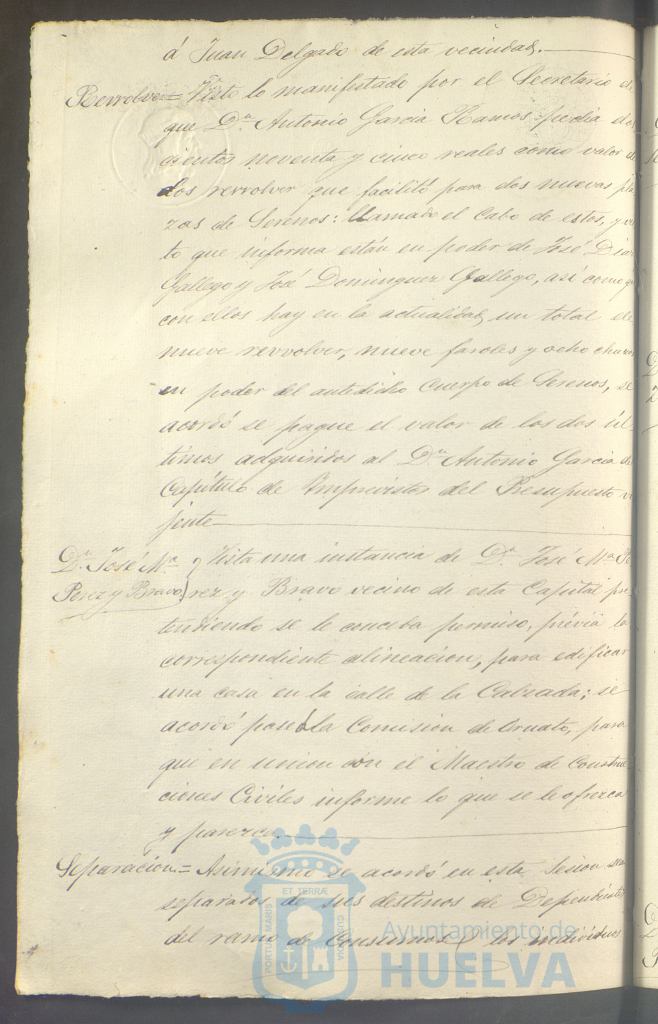 á Juan Delgado de esta vecindad.
Revolver = Visto lo manifestado por el Secretario de
que Dn. Antonio Garcia Ramos pedia dos
cientos noventa y cinco reales como valor de
dos revolver que facilitó para dos nuevas pla
zas de Serenos: llamado el Cabo de estos, y vis
to que informa están en poder de José Diaz
Gallego y José Dominguez Gallego, así como que
con ellos hay en la actualidad, un total de
nueve revolver, nueve faroles y ocho chuzos
en poder del antedicho Cuerpo de Serenos, se
acordó se pague el valor de los dos úl
timos adquiridos al Dn. Antonio Garcia de
Capítulo de Imprevistos del Presupuesto vi
jente
Dn. José Ma. Perez y Bravo
Vista una instancia de Dn. José Ma. Pe
rez y Bravo vecino de esta Capital pre
tendiendo se le conceda permiso, prévia la
correspondiente alineacion, para edificar
una casa en la calle de la Calzada; se
acordó pase á la Comision de Ornato, para
que en union con el Maestro de Construc
ciones Civiles informe lo que se le ofrezca
y parezca.
Separacion = Asimismo se acordó en esta Sesion sean
separados de sus destinos de Dependientes
del ramo de Consumos los individuos
PORTUS MARIS ET TERRÆ CUSTODIA
Ayuntamiento de
HUELVA